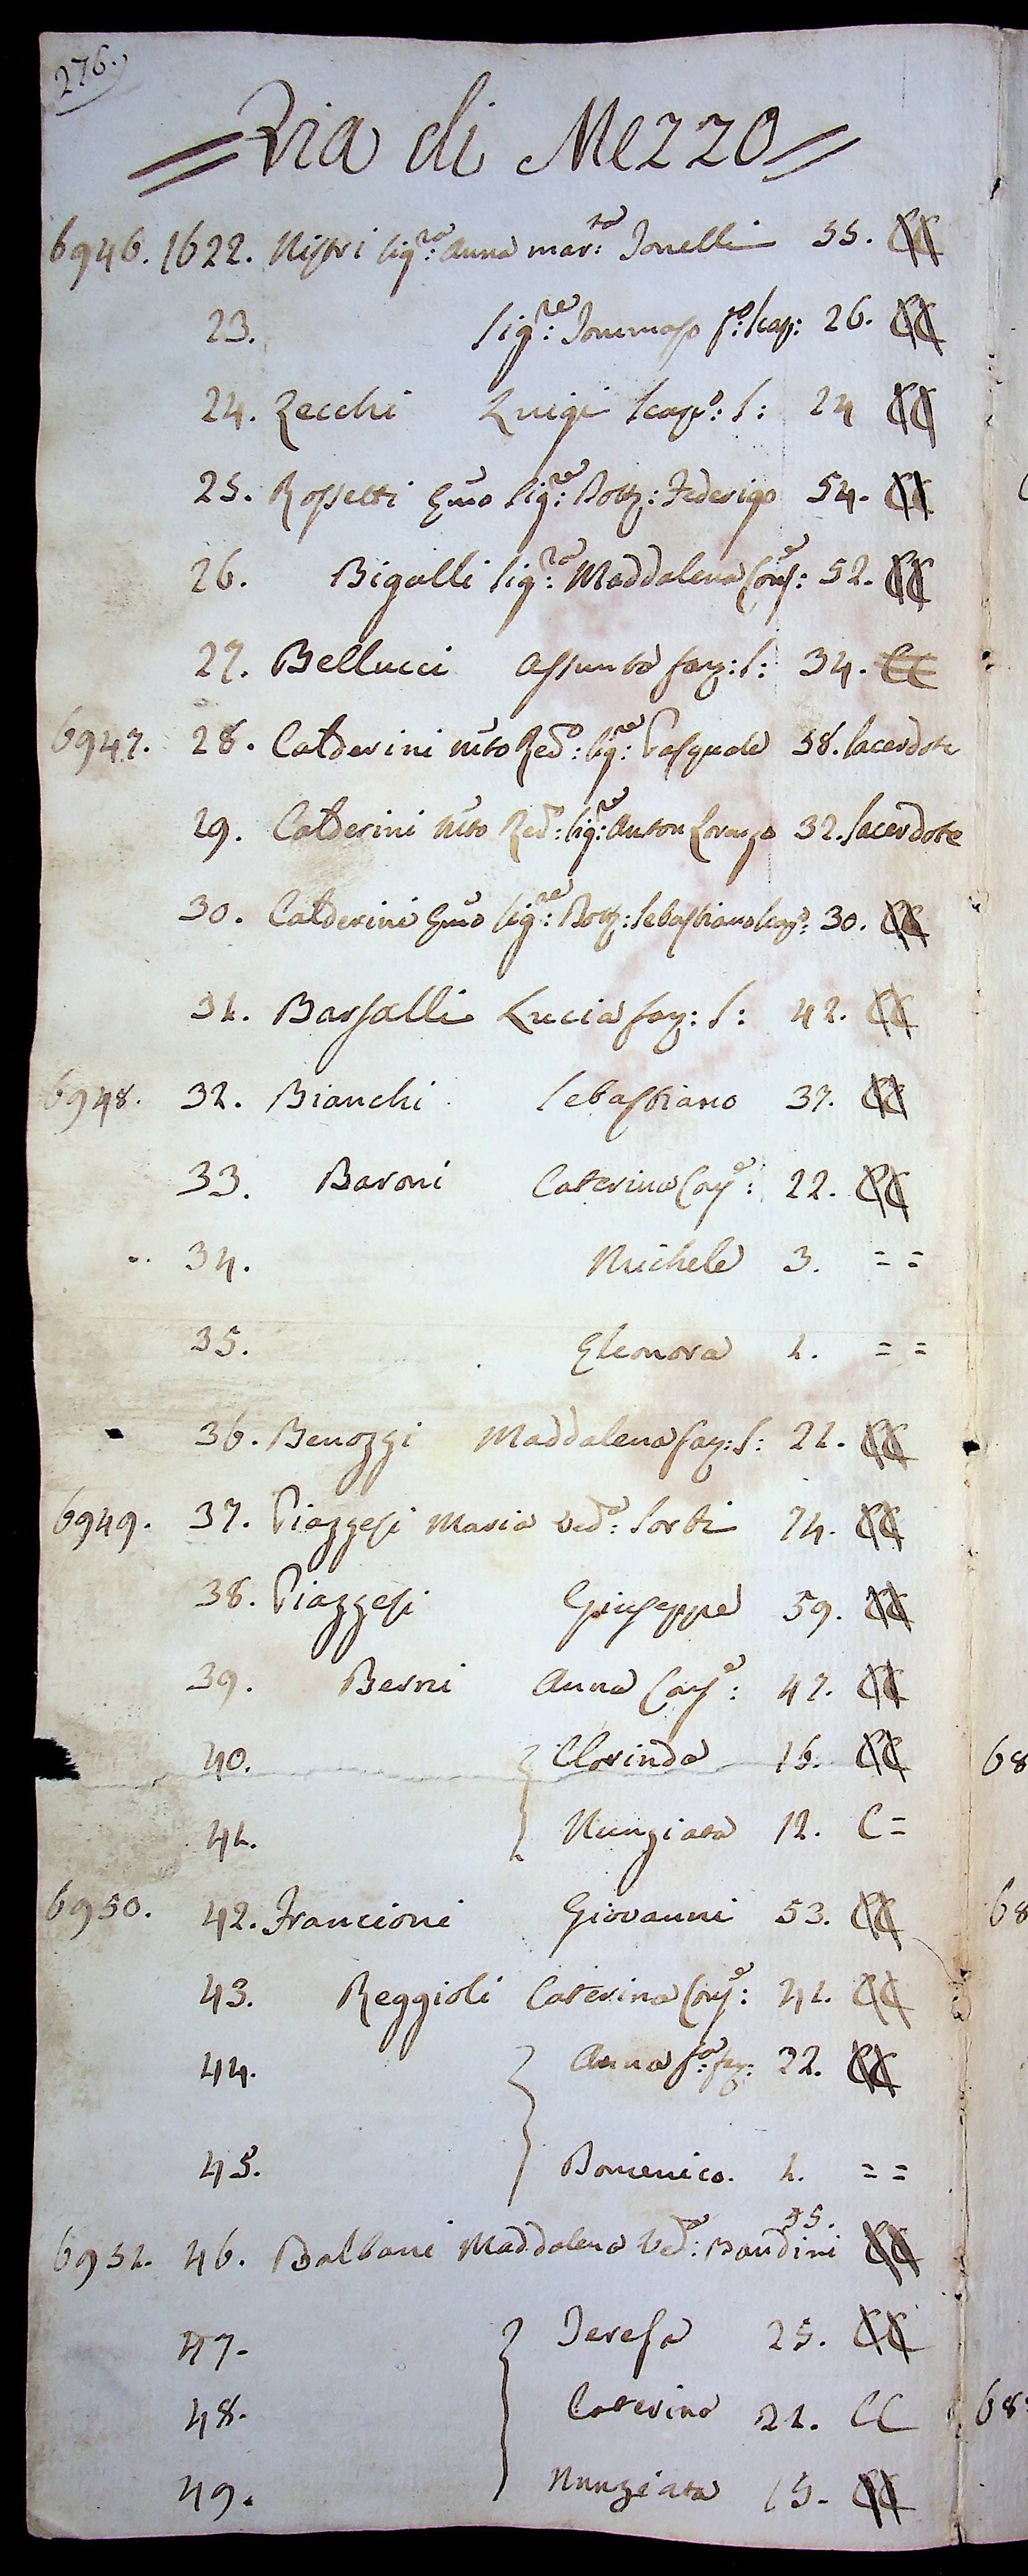 276.
= Via di Mezzo =
6946. 1622. Nistri Sig:ra Anna mar:ta Tonelli 55. CC
23. Sig:re Tommaso f:o Scap: 26. CC
24. Zecchi Luigi Scap:o S: 24 CC
25. Rossetti Ecc:mo Sig:re Dott: Federigo 54. CC
26. Bigalli Sig:ra Maddalena Con:e 52. CC
27. Bellucci Assunta fan: S: 34. CC
6947. 28. Calderini Mto Red:o Sig:re Pasquale 58. Sacerdote
29. Calderini Mto Red: Sig:re Anton Lorenzo 32. Sacerdote
30. Calderini Ecc:mo Sig:re Dott: Sebastiano Scap:o 30. CC
31. Barsalli Lucia fan: S: 42. CC
6948. 32. Bianchi Sebastiano 37. CC
33. Baroni Caterina Con:e 22. CC
34. Michele 3. = =
35. Eleonora 1. = =
36. Benozzi Maddalena fan: S: 21. CC
6949. 37. Piazzesi Maria Ved:a Sorbi 74. CC
38. Piazzesi Giuseppe 59. CC
39. Berni Anna Con:e 47. CC
40. Clorinda 16. CC
41. Nunziata 12. C=
6950. 42. Francioni Giovanni 53. CC
43. Reggioli Caterina Con:e 41. CC
44. Anna f:a fan: 22. CC
45. Domenico. 1. = =
55.
6951. 46. Balbani Maddalena Ved:a Bandini CC
47. Teresa 25. CC
48. Caterina 21. CC
49. Nunziata 15. CC
68
68
68